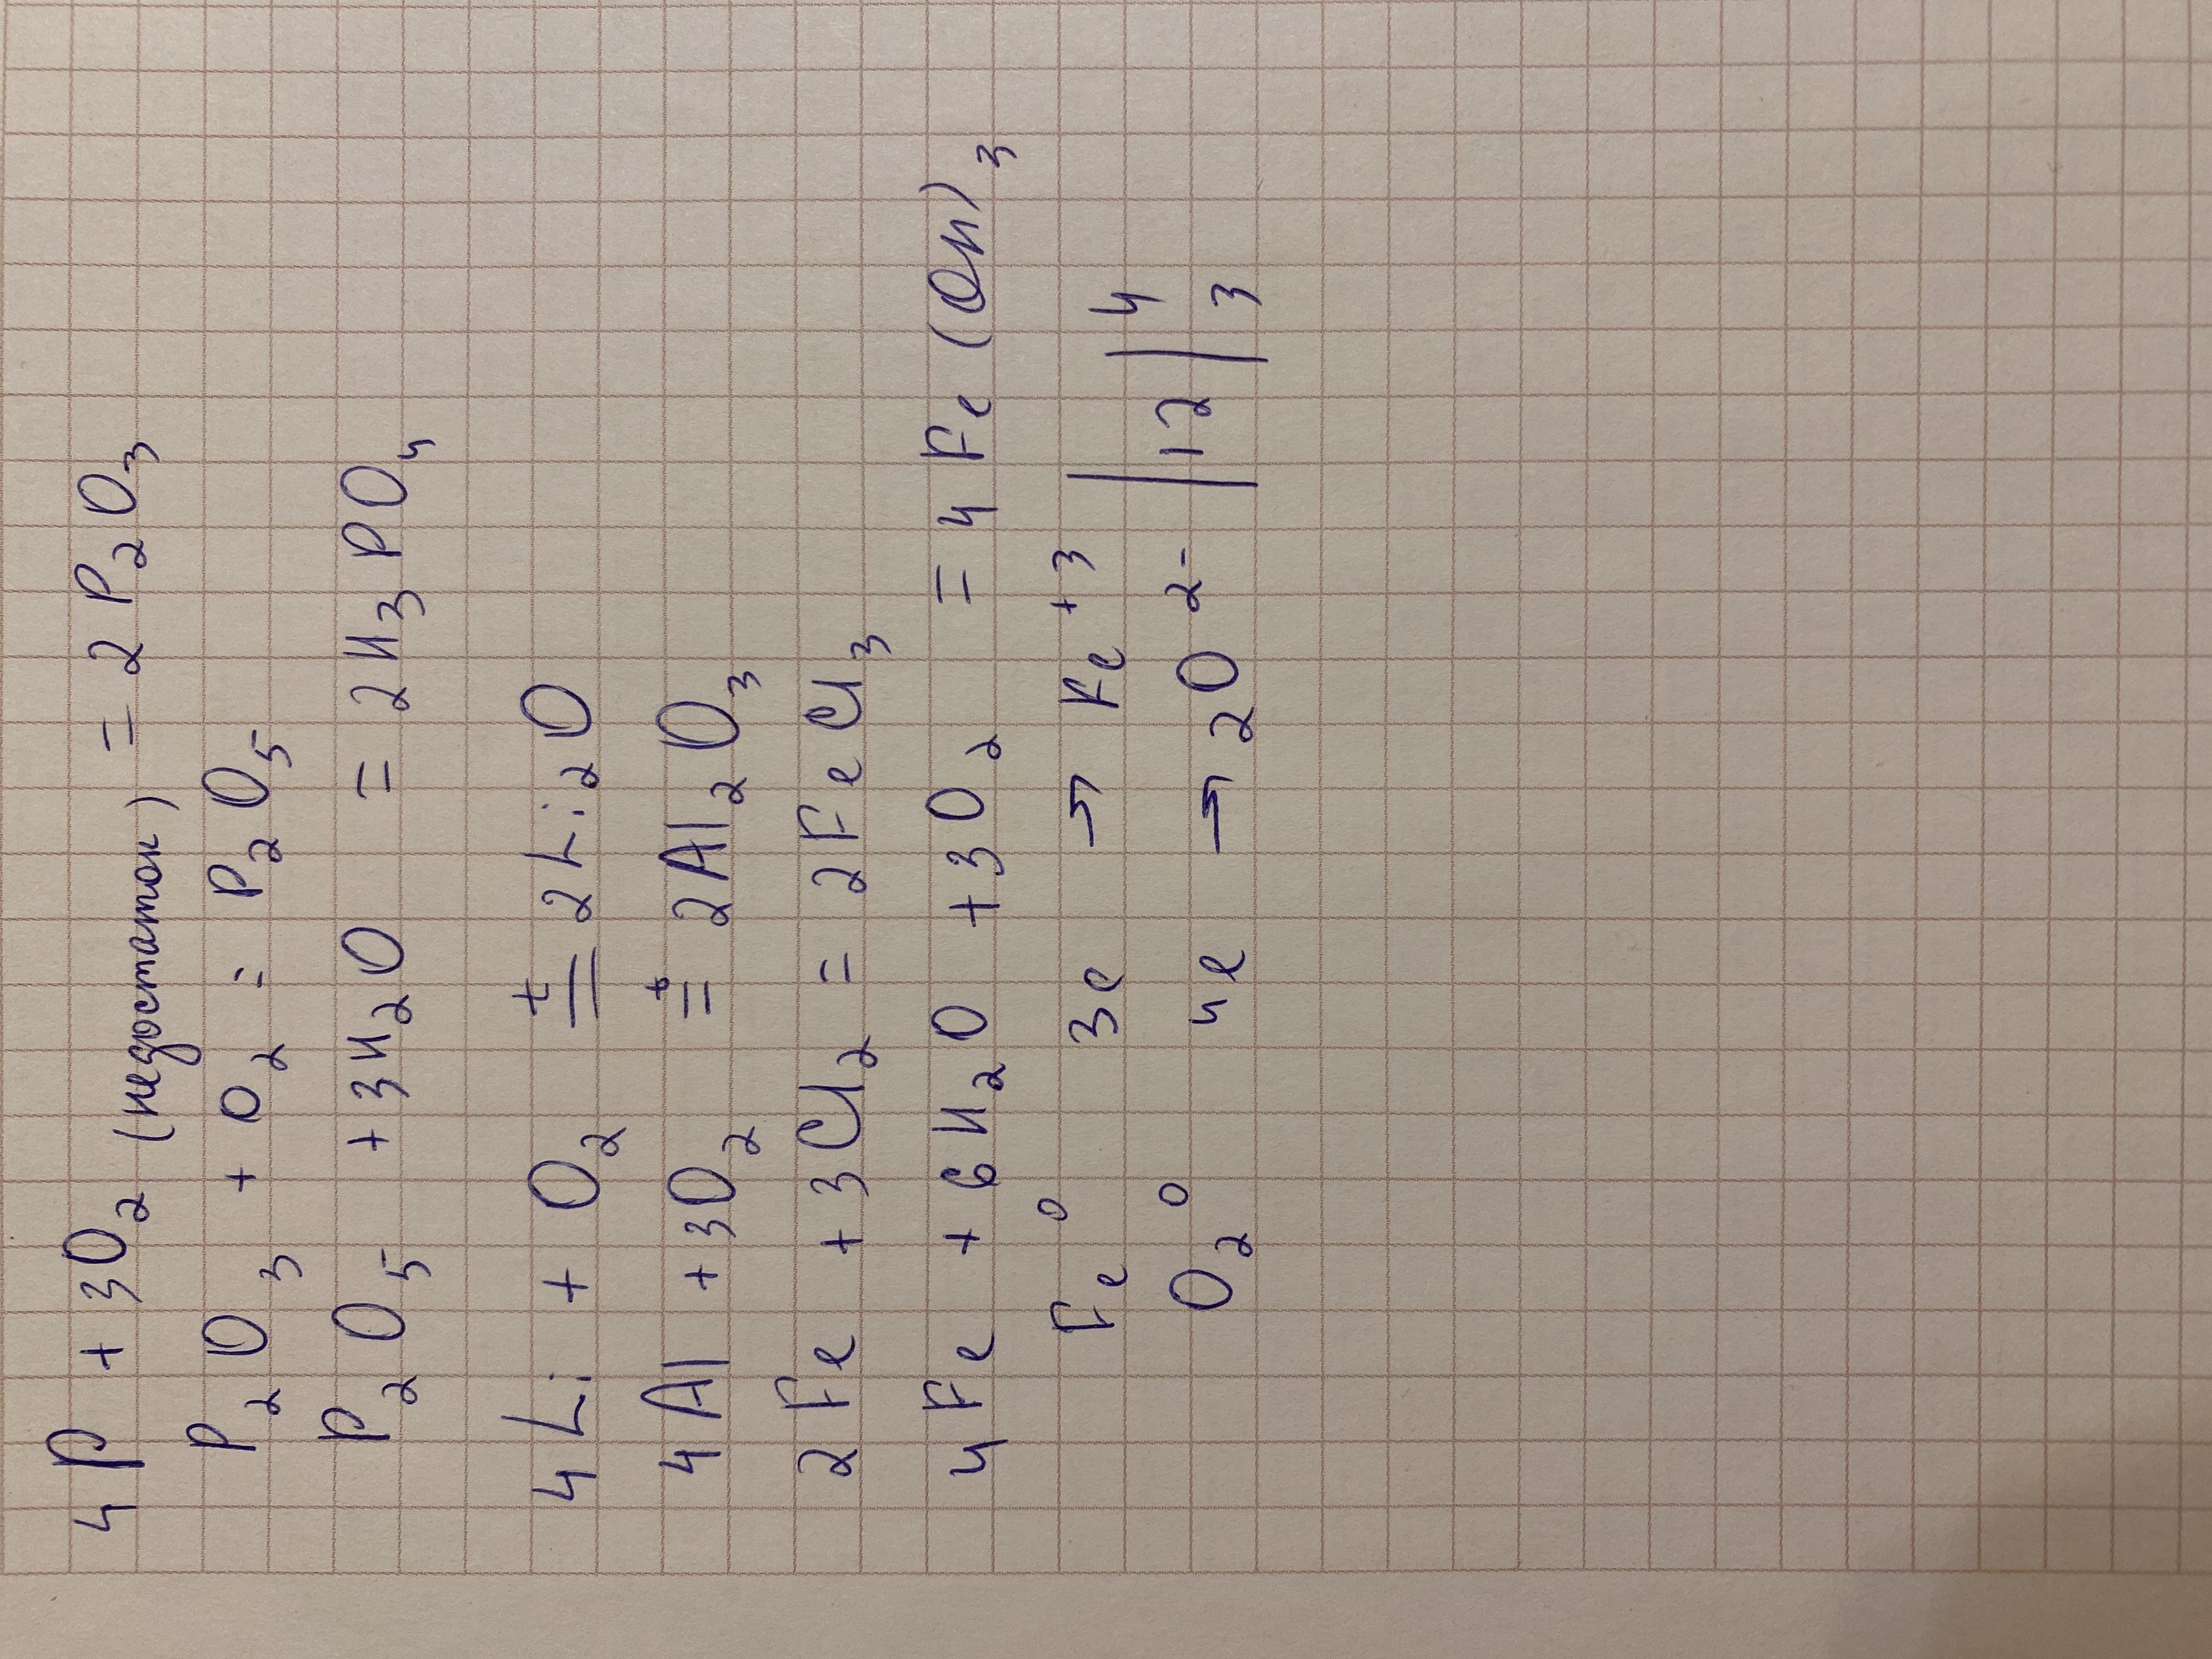 4P + 3O₂ (недостаток) = 2P₂O₃
P₂O₃ + O₂ = P₂O₅
P₂O₅ + 3H₂O = 2H₃PO₄
4Li + O₂ =ᵗ 2Li₂O
4Al + 3O₂ =ᵗ 2Al₂O₃
2Fe + 3Cl₂ = 2FeCl₃
4Fe + 6H₂O + 3O₂ = 4Fe(OH)₃
Fe⁰ 3e → Fe⁺³ | | 4
O₂⁰ 4e → 2O²⁻ | 12 | 3